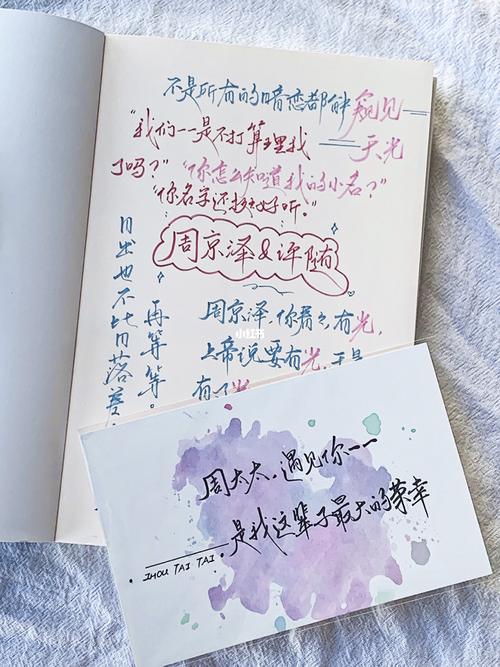 不是所有的暗恋都能窥见——
"我们——是不打算理我——天光
了吗？""你怎么知道我的小名？"
"你名字还挺好听。"
周京泽&许随
日出也不比日落差。
再等等。
周京泽，你看，有光，
上帝说要有光，于是
有了光
小红书
周太太，遇见你——
是我这辈子最大的荣幸
ZHOU TAI TAI.